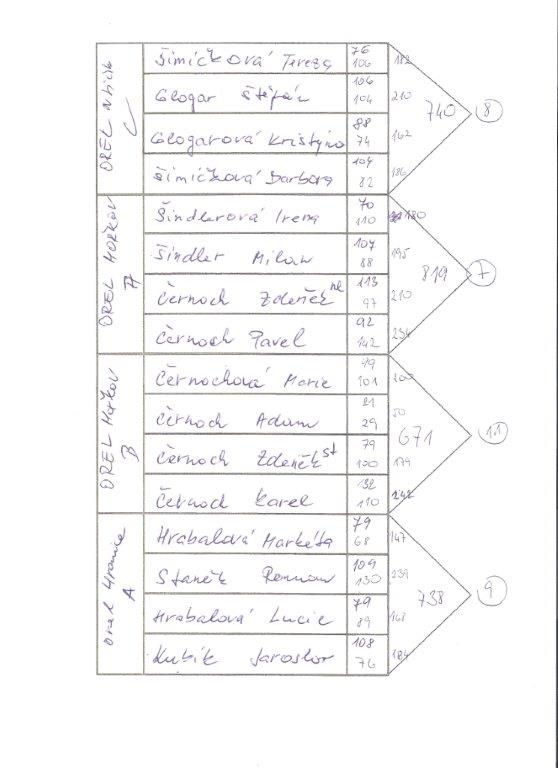 OREL N.Jičín
C
Šimíčková Tereza 76 182
106
Glogar Štěpán 106 210
104
740 8
Glogarová Kristýna 88 162
74
Šimíčková Barbora 104 186
82
OREL Mořkov
A
Šindlerová Irena 70 180
110
Šindler Milan 107 195
88
819 7
Černoch Zdeněk ml 113 210
97
Černoch Pavel 92 234
142
OREL Mořkov
B
Černochová Marie 99 200
101
Černoch Adam 21 50
29
671 11
Černoch Zdeněk st 79 179
100
Černoch Karel 132 242
110
Orel Hranice
A
Hrabalová Markéta 79 147
68
Staněk Roman 109 239
130
738 9
Hrabalová Lucie 79 168
89
Kubík Jaroslav 108 184
76